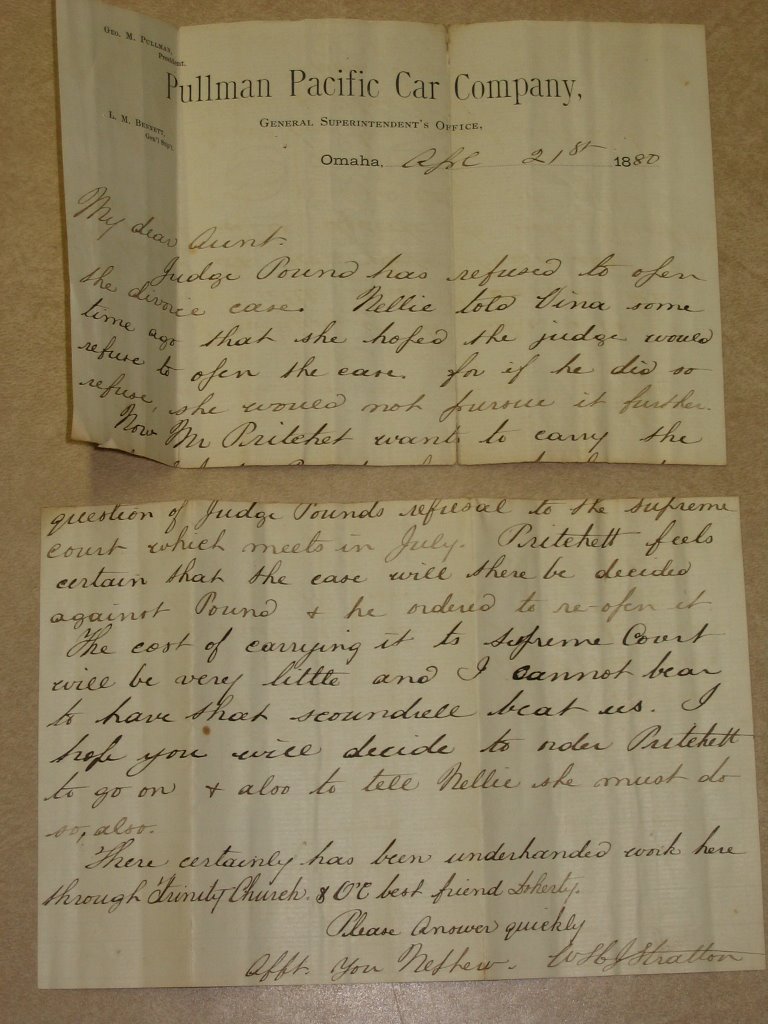 Geo. M. Pullman,
President.
Pullman Pacific Car Company,
L. M. Bennett,
Gen'l Sup't.
General Superintendent's Office,
Omaha, Apl 21st 1880
My dear Aunt.
Judge Pound has refused to open
the divorce case. Nellie told Vina some
time ago that she hoped the judge would
refuse to open the case. for if he did so
refuse, she would not pursue it further.
Now Mr Pritchet wants to carry the
question of Judge Pounds refusal to the supreme
court which meets in July. Pritchett feels
certain that the case will there be decided
against Pound & he ordered to re-open it
The cost of carrying it to supreme Court
will be very little and I cannot bear
to have that scoundrell beat us. I
hope you will decide to order Pritchett
to go on & also to tell Nellie she must do
so, also.
There certainly has been underhanded work here
through Trinity Church. & best friend Doherty.
Please Answer quickly
Afft. You Nephew. Stratton